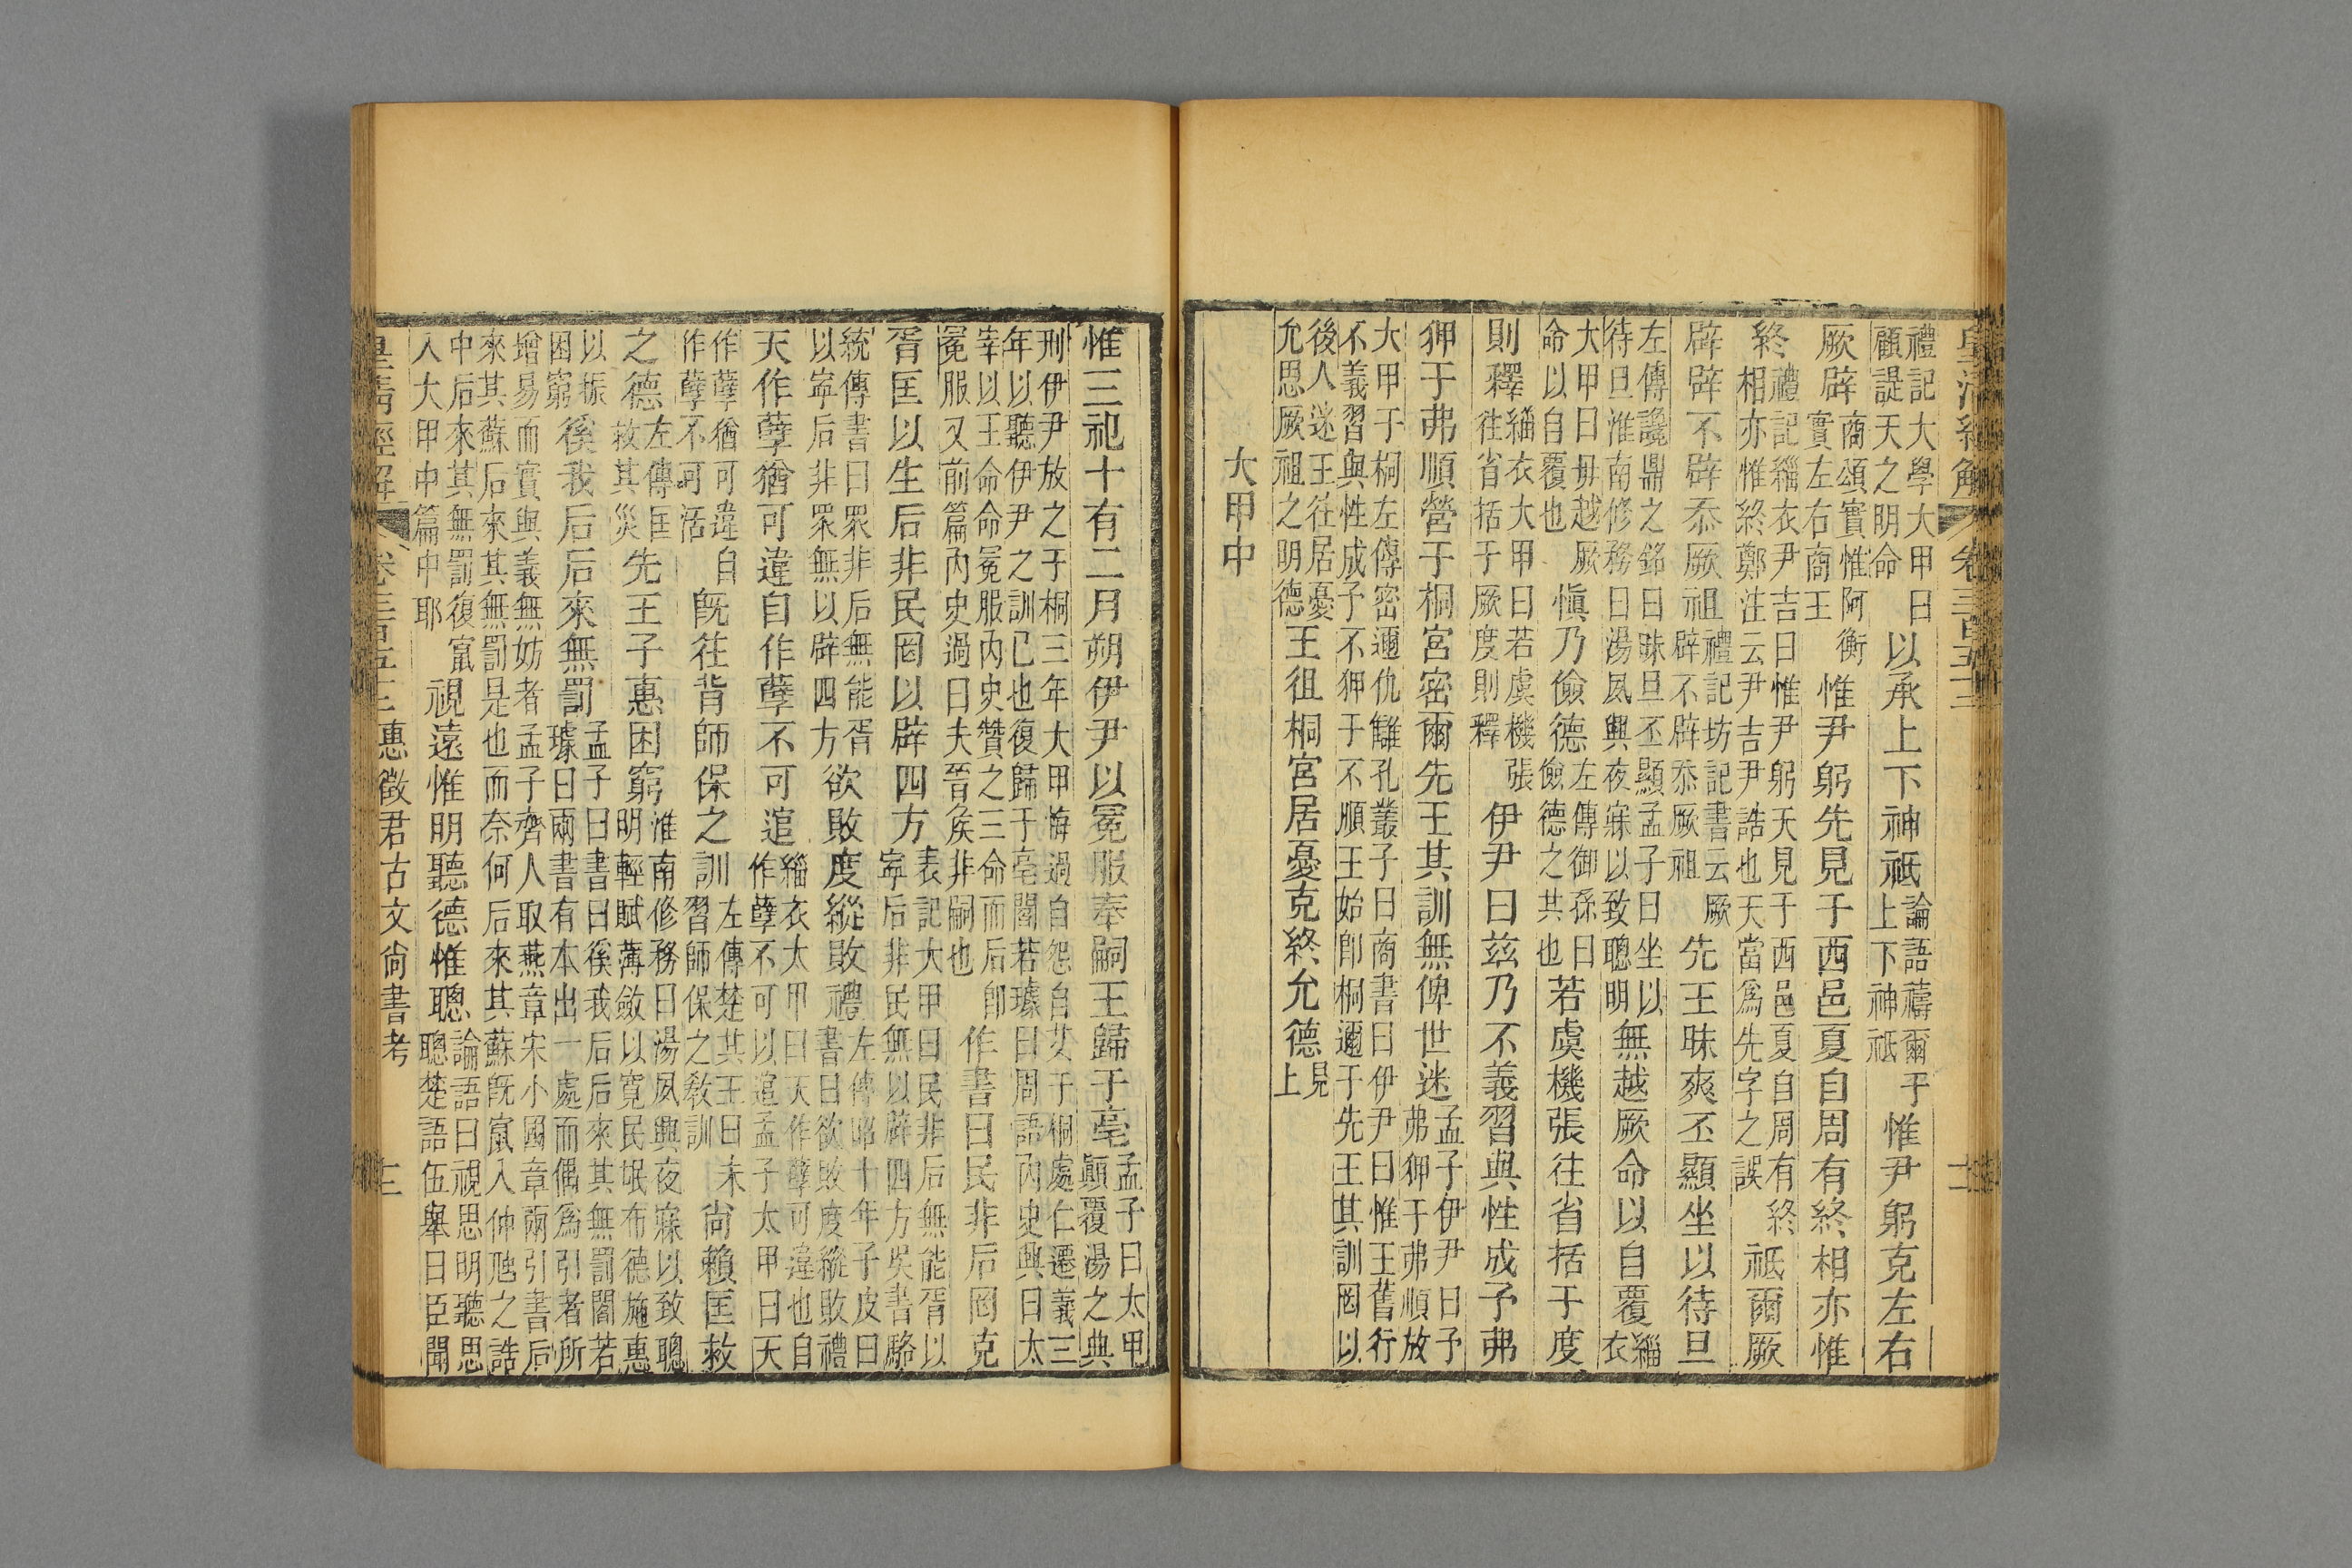 皇清經解 卷三百五十三
禮記大學大甲曰顧諟天之明命以承上下神祇論語禱爾于上下神祇惟尹躬克左右
厥辟商頌實惟阿衡實左右商王惟尹躬先見于西邑夏自周有終相亦惟
終禮記緇衣尹吉曰惟尹躬天見于西邑夏自周有終相亦惟終鄭注云尹吉尹誥也天當爲先字之誤祗爾厥
辟辟不辟忝厥祖禮記坊記書云厥辟不辟忝厥祖先王昧爽丕顯坐以待旦
左傳讒鼎之銘曰昧旦丕顯孟子曰坐以待旦淮南修務曰湯夙興夜寐以致聰明無越厥命以自覆緇衣
大甲曰毋越厥命以自覆也愼乃儉德左傳御孫曰儉德之共也若虞機張往省括于度
則釋緇衣大甲曰若虞機張往省括于厥度則釋伊尹曰茲乃不義習與性成予弗
狎于弗順營于桐宮密爾先王其訓無俾世迷孟子伊尹曰予弗狎于弗順放
大甲于桐左傳密邇仇讎孔叢子曰商書曰伊尹曰惟王舊行不義習與性成子不狎于不順王始卽桐邇于先王其訓罔以
後人迷王往居憂允思厥祖之明德王徂桐宮居憂克終允德見上
大甲中
惟三祀十有二月朔伊尹以冕服奉嗣王歸于亳孟子曰太甲顛覆湯之典
刑伊尹放之于桐三年大甲悔過自怨自艾于桐處仁遷義三年以聽伊尹之訓已也復歸于亳閻若璩曰周語內史興曰太
宰以王命命冕服內史贊之三命而后卽冕服又前篇內史過曰夫晉侯非嗣也作書曰民非后罔克
胥匡以生后非民罔以辟四方表記大甲曰民非后無能胥以寧后非民無以辟四方吳書駱
統傳書曰眾非后無能胥以寧后非眾無以辟四方欲敗度縱敗禮左傳昭十年子皮曰書曰欲敗度縱敗禮
天作孽猶可違自作孽不可逭緇衣太甲曰天作孽可違也自作孽不可以逭孟子太甲曰天
作孽猶可違自作孽不可活旣往背師保之訓左傳楚其王曰未習師保之敎訓尙賴匡救
之德左傳匡救其災先王子惠困窮淮南修務曰湯夙興夜寐以致聰明輕賦薄斂以寬民氓布德施惠
以振困窮徯我后后來無罰孟子曰書曰徯我后后來其無罰閻若璩曰兩書有本出一處而偶爲引者所
增易而實與義無妨者孟子齊人取燕章宋小國章兩引書后來其蘇后來其無罰是也而奈何后來其蘇旣竄入仲虺之誥
中后來其無罰復竄入大甲中篇中耶視遠惟明聽德惟聰論語曰視思明聽思聰楚語伍舉曰臣聞
皇清經解 卷三百五十三 惠徵君古文尙書考